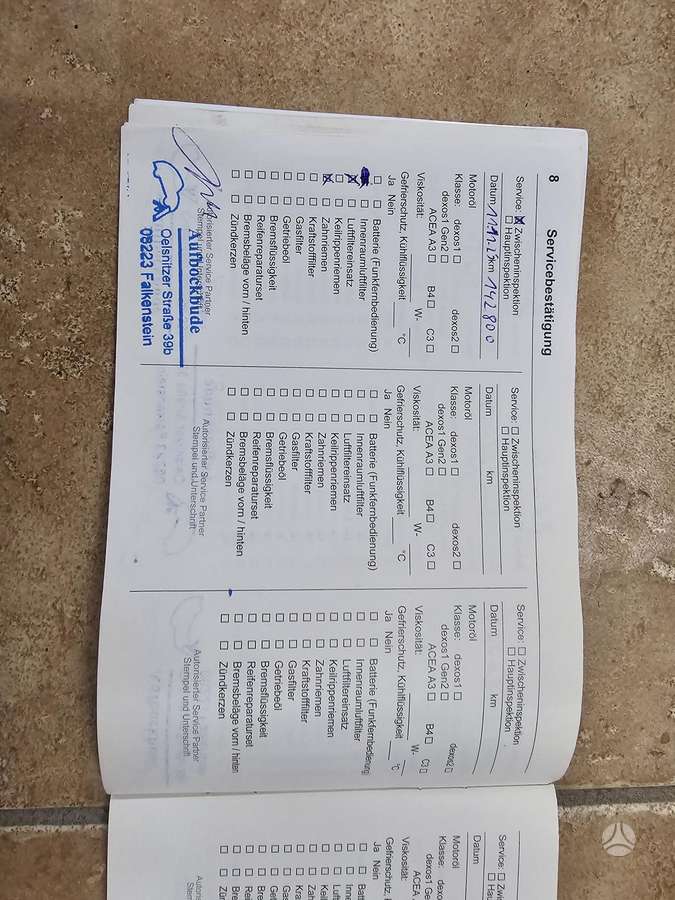 8
Servicebestätigung
Service: ☒ Zwischeninspektion
☐ Hauptinspektion
Datum km 142800
Motoröl
Klasse: dexos1 ☐ dexos2 ☐
dexos1 Gen2 ☐
ACEA A3 ☐ B4 ☐ C3 ☐
Viskosität: W-
Gefrierschutz, Kühlflüssigkeit °C
Ja Nein
☐ Batterie (Funkfernbedienung)
☐ Innenraumluftfilter
☒ ☐ Luftfiltereinsatz
☐ ☐ Keilrippenriemen
☒ ☐ Zahnriemen
☐ ☐ Kraftstofffilter
☐ ☐ Gasfilter
☐ ☐ Getriebeöl
☐ ☐ Bremsflüssigkeit
☐ ☐ Reifenreparaturset
☐ ☐ Bremsbeläge vorn / hinten
☐ ☐ Zündkerzen
Autorisierter Service Partner
Stempel und
Aufbockbude
Oelsnitzer Straße 39b
08223 Falkenstein
Service: ☐ Zwischeninspektion
☐ Hauptinspektion
Datum km
Motoröl
Klasse: dexos1 ☐ dexos2 ☐
dexos1 Gen2 ☐
ACEA A3 ☐ B4 ☐ C3 ☐
Viskosität: W-
Gefrierschutz, Kühlflüssigkeit °C
Ja Nein
☐ ☐ Batterie (Funkfernbedienung)
☐ ☐ Innenraumluftfilter
☐ ☐ Luftfiltereinsatz
☐ ☐ Keilrippenriemen
☐ ☐ Zahnriemen
☐ ☐ Kraftstofffilter
☐ ☐ Gasfilter
☐ ☐ Getriebeöl
☐ ☐ Bremsflüssigkeit
☐ ☐ Reifenreparaturset
☐ ☐ Bremsbeläge vorn / hinten
☐ ☐ Zündkerzen
Autorisierter Service Partner
Stempel und Unterschrift
Service: ☐ Zwischeninspektion
☐ Hauptinspektion
Datum km
Motoröl
Klasse: dexos1 ☐ dexos2 ☐
dexos1 Gen2 ☐
ACEA A3 ☐ B4 ☐ C3 ☐
Viskosität: W-
Gefrierschutz, Kühlflüssigkeit °C
Ja Nein
☐ ☐ Batterie (Funkfernbedienung)
☐ ☐ Innenraumluftfilter
☐ ☐ Luftfiltereinsatz
☐ ☐ Keilrippenriemen
☐ ☐ Zahnriemen
☐ ☐ Kraftstofffilter
☐ ☐ Gasfilter
☐ ☐ Getriebeöl
☐ ☐ Bremsflüssigkeit
☐ ☐ Reifenreparaturset
☐ ☐ Bremsbeläge vorn / hinten
☐ ☐ Zündkerzen
Autorisierter Service Partner
Stempel und Unterschrift
Service: ☐ Z
☐ Ha
Datum
Motoröl
Klasse: dexos1 ☐
dexos1 Ge
ACEA
Viskosität:
Gefrierschutz, K
Ja Nein
☐ ☐ Bat
☐ ☐ Inn
☐ ☐ Luf
☐ ☐ Kei
☐ ☐ Zah
☐ ☐ Kra
☐ ☐ Gas
☐ ☐ Ge
☐ ☐ Bre
☐ ☐ Rei
☐ ☐ Bre
☐ ☐ Zün
Autoris
Stem